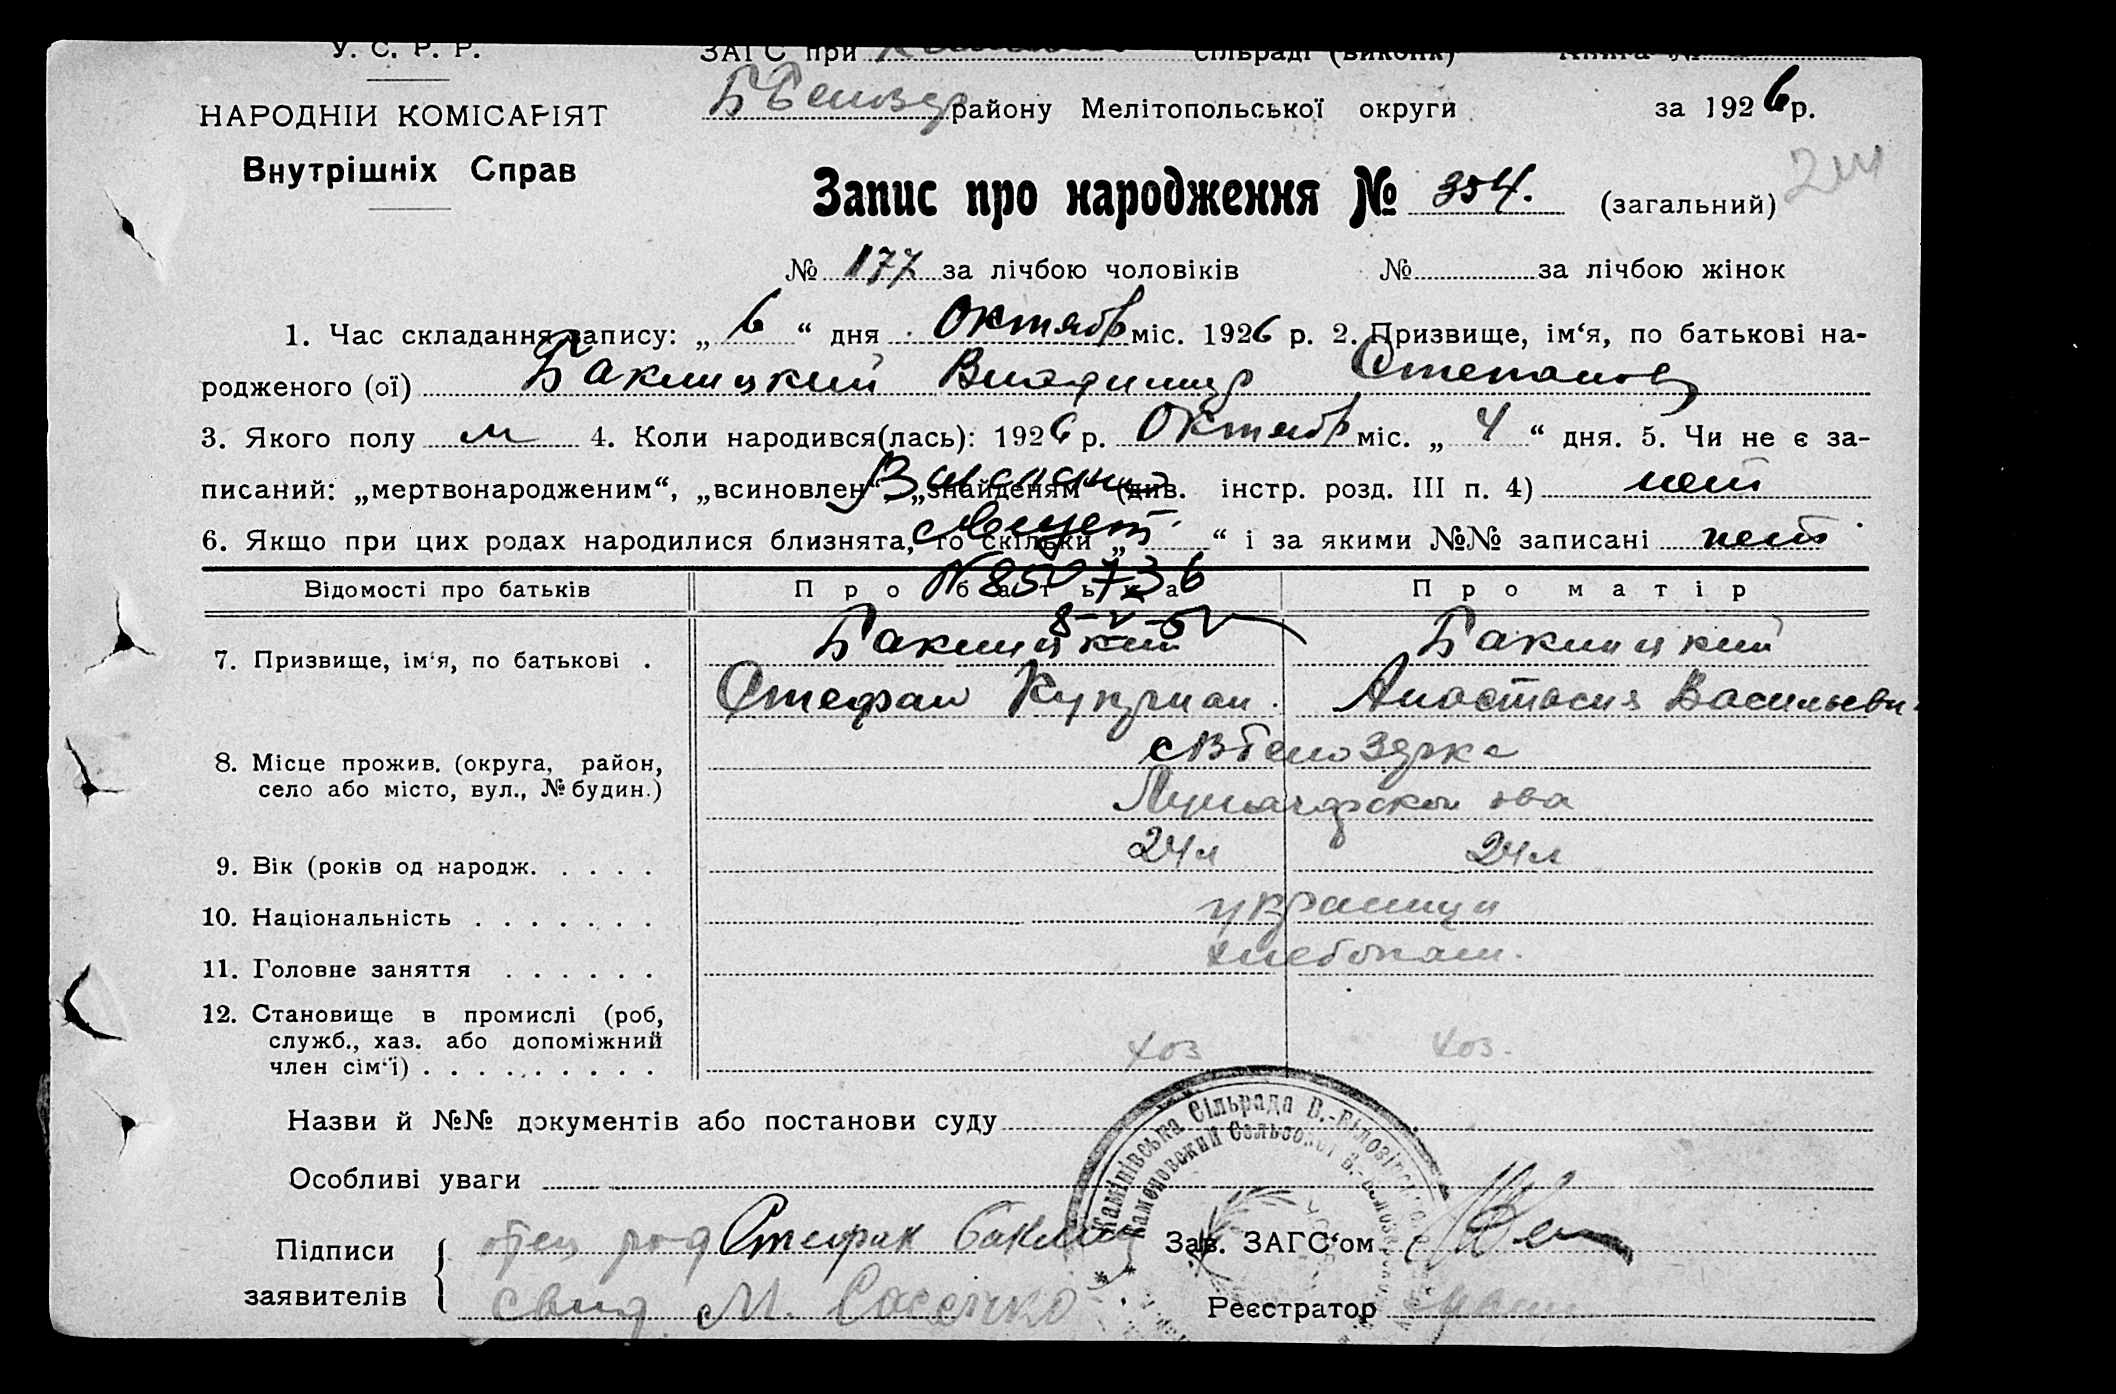 У. С. Р. Р.
ЗАГС при сільраді (виконк) Книга №
НАРОДНІЙ КОМІСАРІЯТ
Внутрішніх Справ
району Мелітопольської округи за 1926 р.
Запис про народження № 354. (загальний)
№ 177 за лічбою чоловіків № за лічбою жінок
1. Час складання запису: „ 6 “ дня Октябр міс. 1926 р. 2. Призвище, ім‘я, по батькові на-
родженого (ої) Баклицкий Владимир Степанов
3. Якого полу м 4. Коли народився(лась): 1926 р. Октябр міс. „ 4 “ дня. 5. Чи не є за-
писаний: „мертвонародженим“, „всиновлен“, „знайденям“ (див. інстр. розд. III п. 4) нет
6. Якщо при цих родах народилися близнята, то скільки „ “ і за якими №№ записані нет
№ 850736
Відомості про батьків Про батька Про матір
8-V-5V
7. Призвище, ім‘я, по батькові . Баклицкий Баклицкий
Стефан Куприан. Анастасия Васильевн.
8. Місце прожив. (округа, район, село або місто, вул., № будин.) сВБелозерка
9. Вік (років од народж. . . . . 24 л 24 л
10. Національність . . . . . . . украинци
11. Головне заняття . . . . . . хлебопаш.
12. Становище в промислі (роб, служб., хаз. або допоміжний член сім‘ї) . . . . . . . . . хоз хоз.
Назви й №№ документів або постанови суду
Особливі уваги
Камінівська Сільрада В.-Білозірськ
Каменовский Сельсовет В.-Белозер
Підписи заявителів
отец род Стефан Бакли
Зав. ЗАГС‘ом
свид М.
Реєстратор